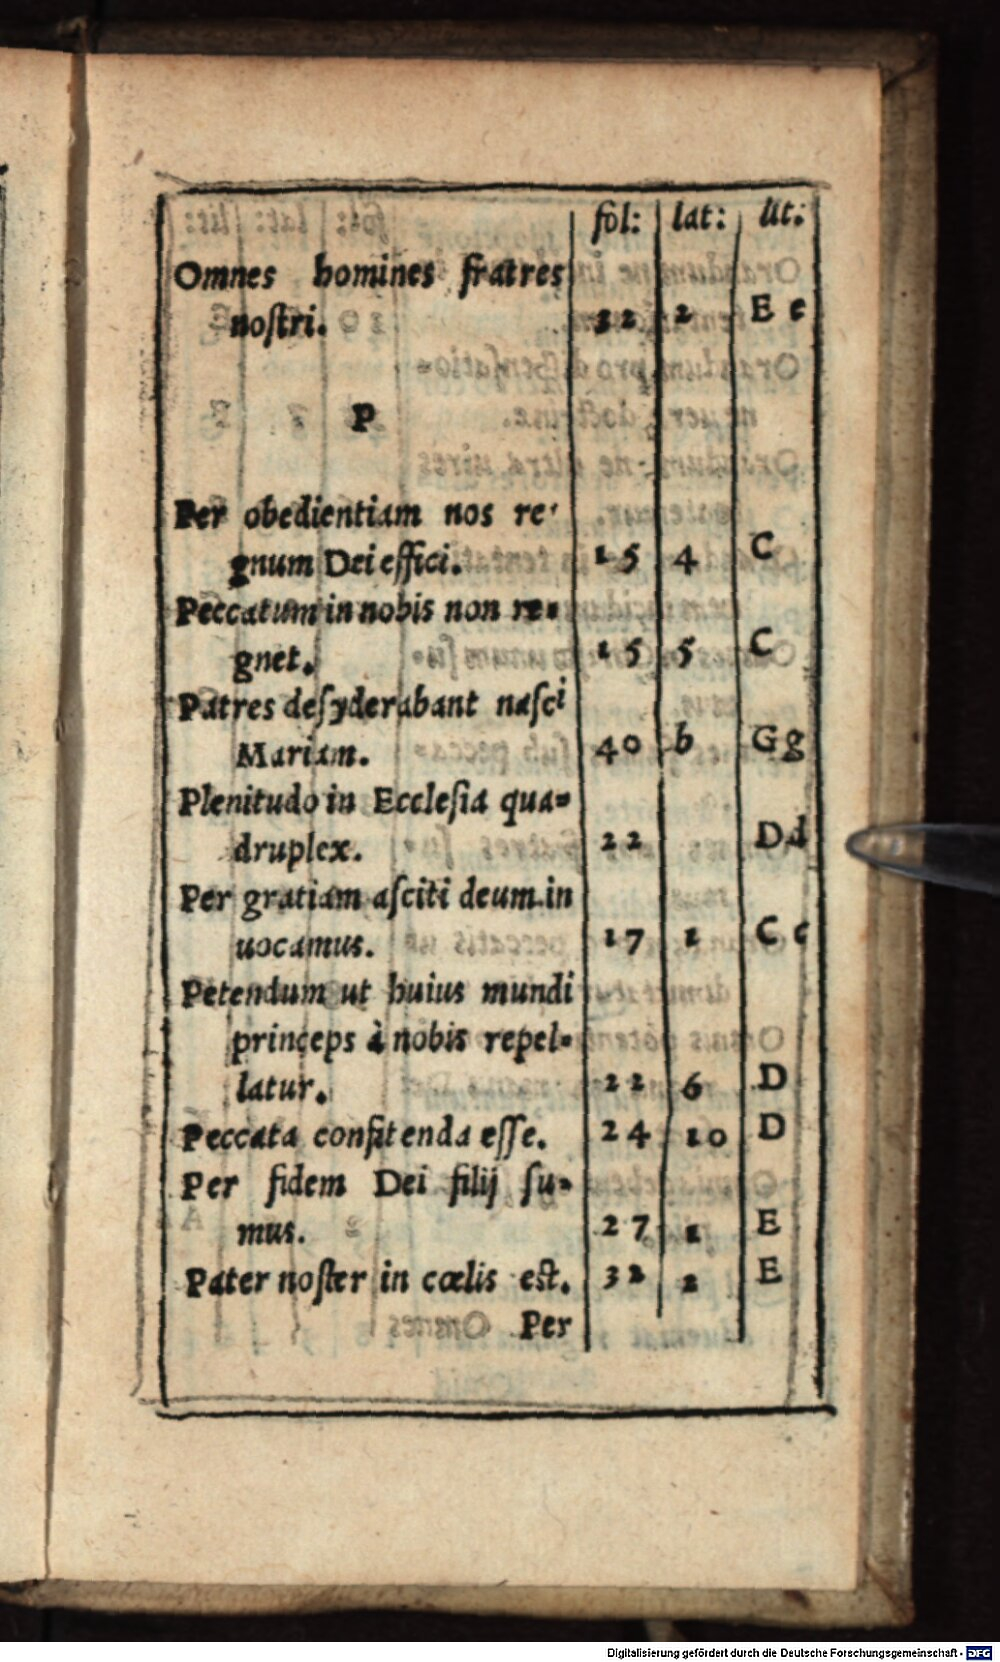 fol: lat: lit:
Omnes homines fratres
nostri. 32 2 E e
P
Per obedientiam nos re-
gnum Dei effici. 15 4 C
Peccatum in nobis non re-
gnet. 15 5 C
Patres desyderabant nasci
Mariam. 40 b G g
Plenitudo in Ecclesia qua-
druplex. 22 D d
Per gratiam asciti deum in
uocamus. 17 1 C c
Petendum ut huius mundi
princeps à nobis repel-
latur. 22 6 D
Peccata confitenda esse. 24 10 D
Per fidem Dei filij su-
mus. 27 1 E
Pater noster in cœlis est. 32 2 E
Per
Digitalisierung gefördert durch die Deutsche Forschungsgemeinschaft - DFG